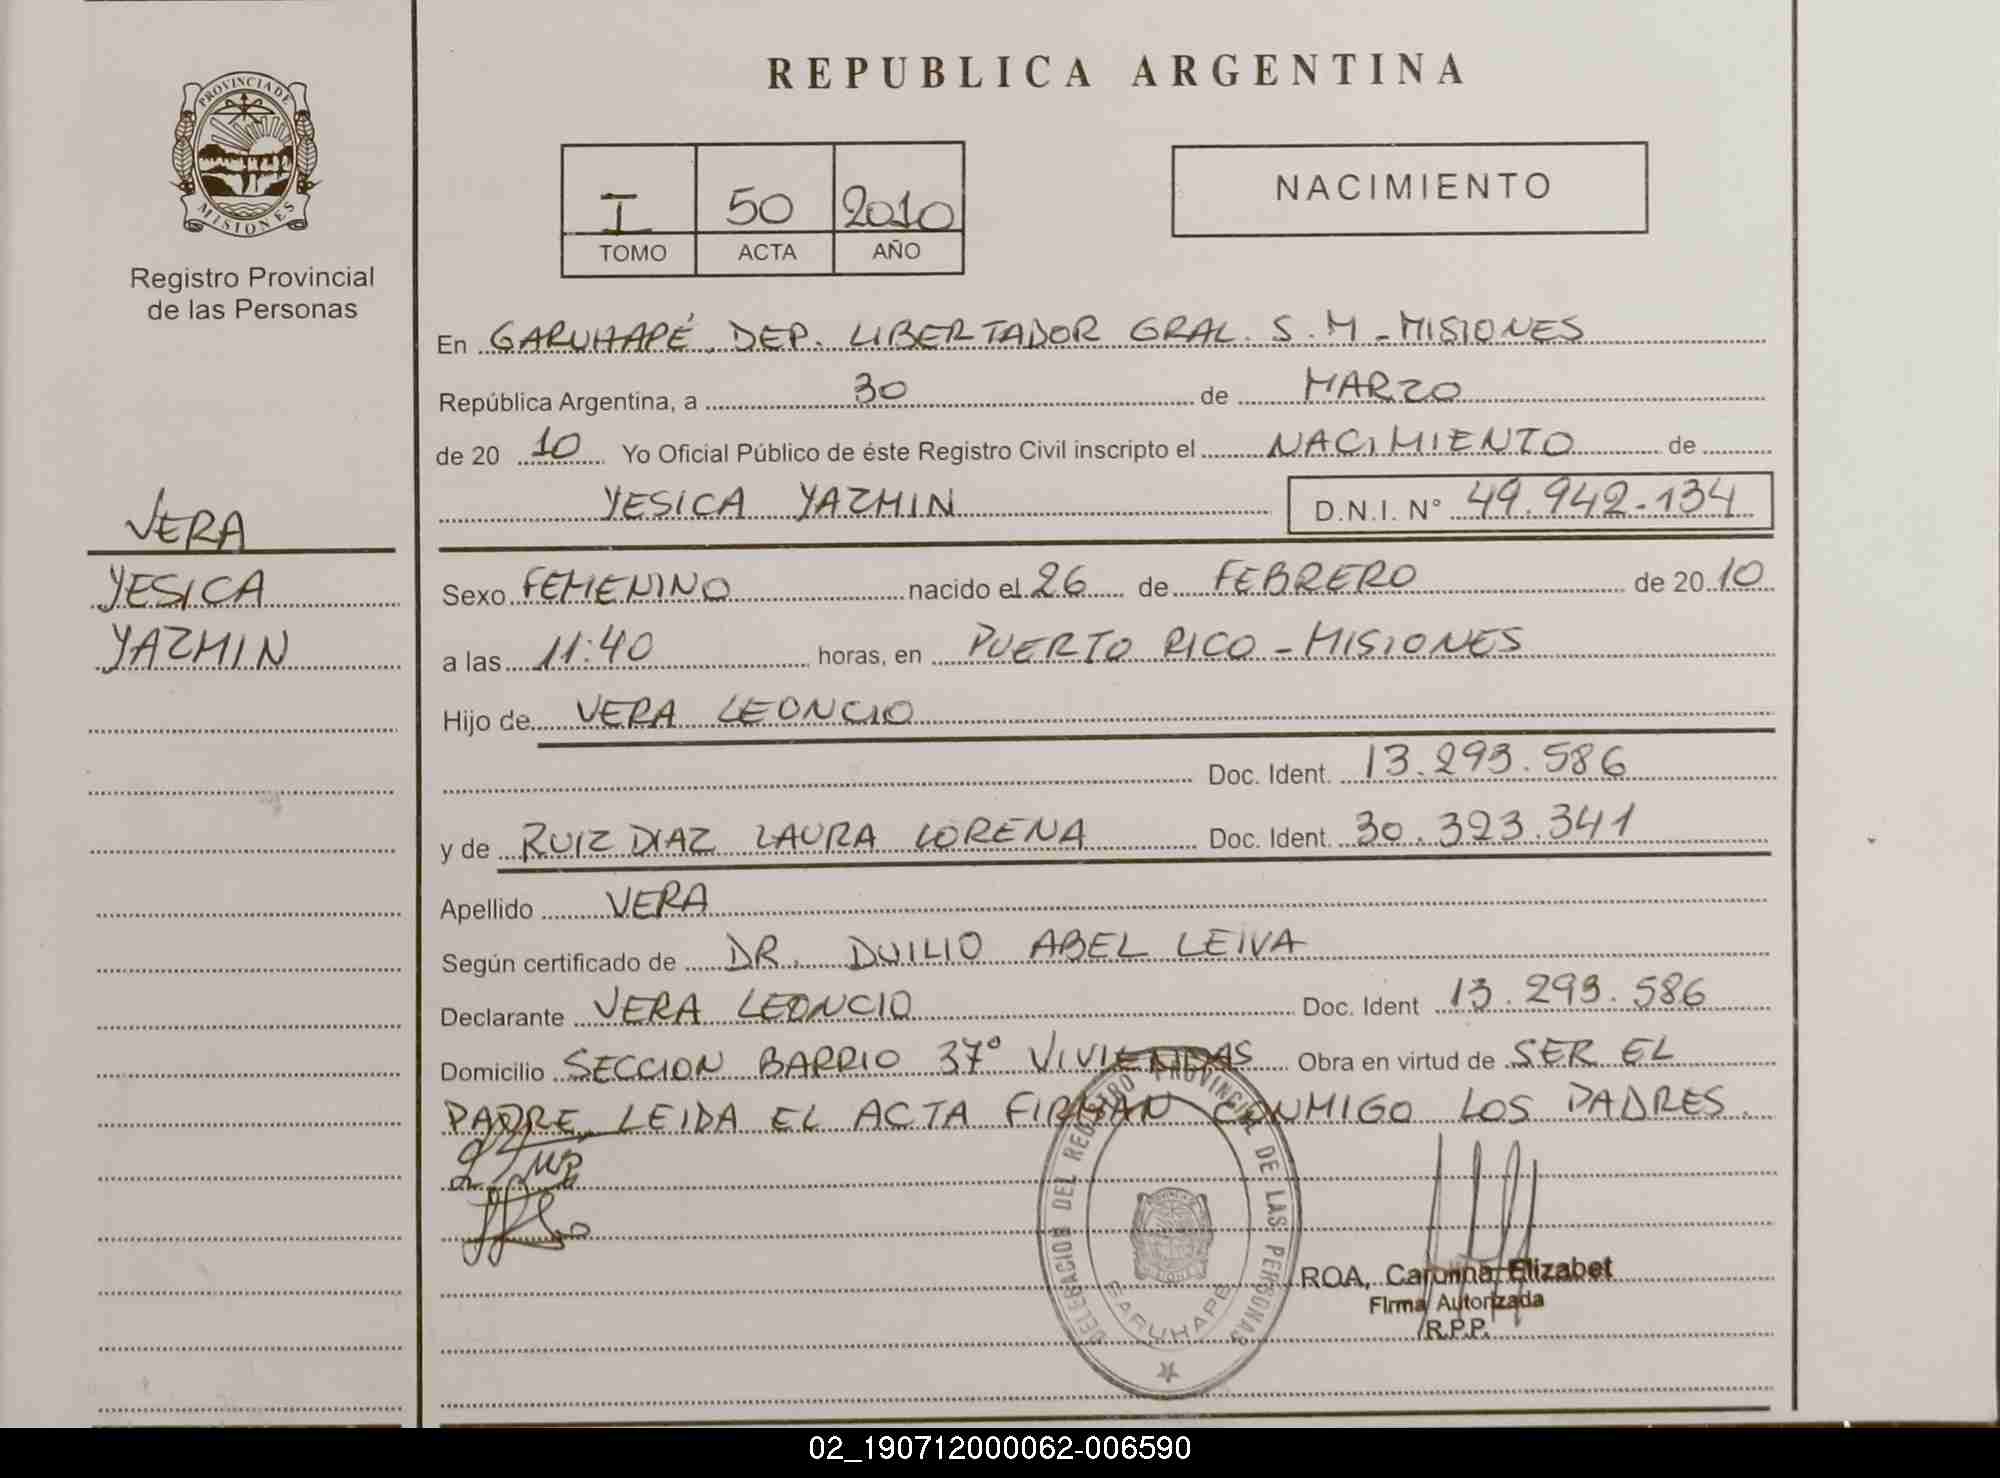 REPUBLICA ARGENTINA
PROVINCIA DE
MISIONES
Registro Provincial
de las Personas
I 50 2010
TOMO ACTA AÑO
NACIMIENTO
En GARUHAPÉ, DEP. LIBERTADOR GRAL. S.M - MISIONES
República Argentina, a 30 de MARZO
de 20 10 Yo Oficial Público de éste Registro Civil inscripto el NACIMIENTO de
YESICA YAZMIN D.N.I. N° 49.942.134
VERA
YESICA
YAZMIN
Sexo FEMENINO nacido el 26 de FEBRERO de 20 10
a las 11:40 horas, en PUERTO RICO - MISIONES
Hijo de VERA LEONCIO
Doc. Ident. 13.293.586
y de RUIZ DIAZ LAURA LORENA Doc. Ident. 30.323.341
Apellido VERA
Según certificado de DR. DUILIO ABEL LEIVA
Declarante VERA LEONCIO Doc. Ident 13.293.586
Domicilio SECCION BARRIO 37° VIVIENDAS Obra en virtud de SER EL
PADRE, LEIDA EL ACTA FIRMAN CONMIGO LOS PADRES.
DELEGACION DEL REGISTRO PROVINCIAL DE LAS PERSONAS
GARUHAPE
ROA, Carolina Elizabet
Firma Autorizada
R.P.P.
02_190712000062-006590